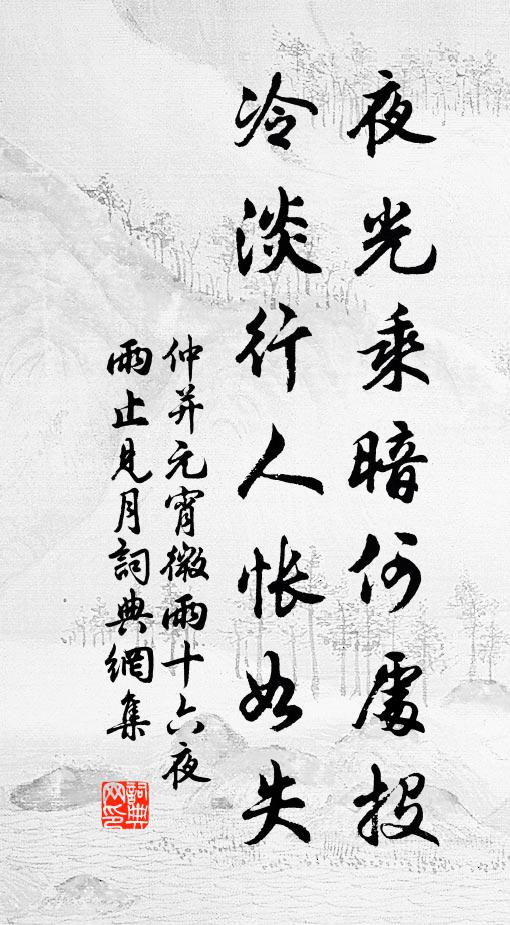 夜光乘暗何處投
冷淡行人悵如失
仲并元宵微雨十六夜
雨止見月詞典網集
詞典网印